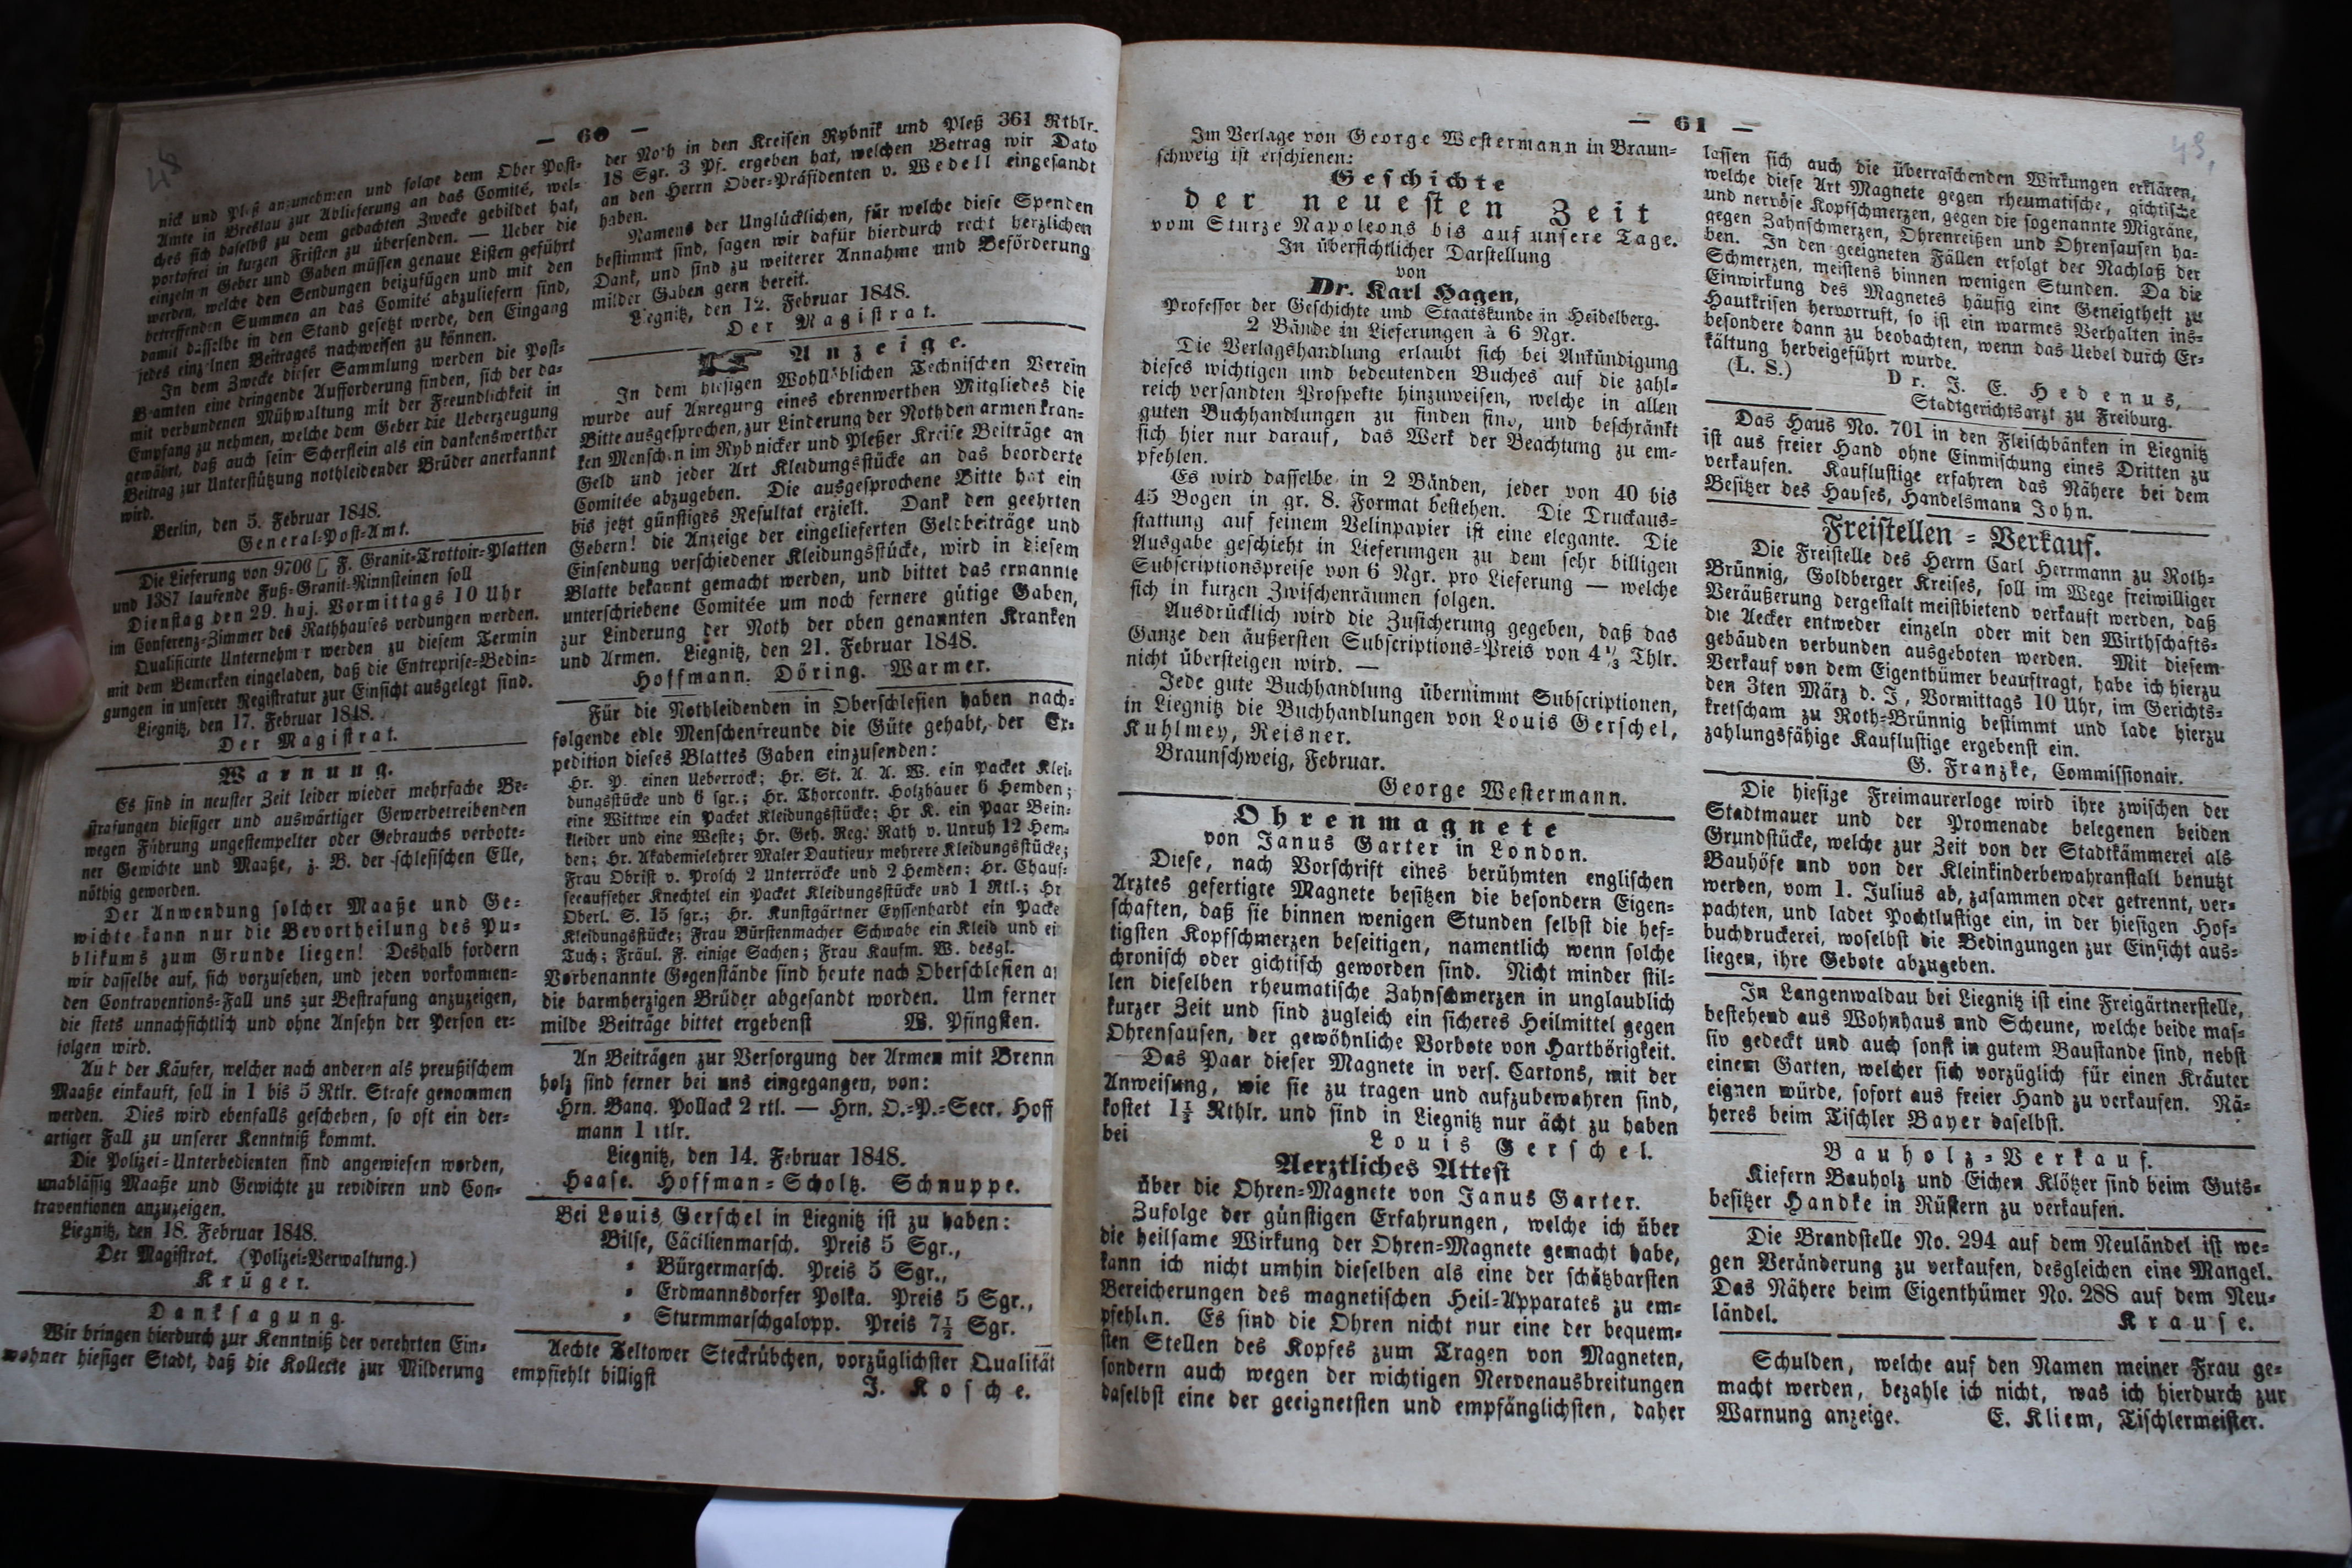 — 60 —
48
nick und Pleß anzunehmen und solche dem Ober Post-
Amte in Breslau zur Ablieferung an das Comité, wel-
ches sich daselbst zu dem gedachten Zwecke gebildet hat,
portofrei in kurzen Fristen zu übersenden. — Ueber die
einzelnen Geber und Gaben müssen genaue Listen geführt
werden, welche den Sendungen beizufügen und mit den
betreffenden Summen an das Comité abzuliefern sind,
damit dasselbe in den Stand gesetzt werde, den Eingang
jedes einzelnen Beitrages nachweisen zu können.
In dem Zwecke dieser Sammlung werden die Post-
Beamten eine dringende Aufforderung finden, sich der da-
mit verbundenen Mühwaltung mit der Freundlichkeit in
Empfang zu nehmen, welche dem Geber die Ueberzeugung
gewährt, daß auch sein Scherflein als ein dankenswerther
Beitrag zur Unterstützung nothleidender Brüder anerkannt
wird.
Berlin, den 5. Februar 1848.
General-Post-Amt.
Die Lieferung von 9700 □ F. Granit-Trottoir-Platten
und 1387 laufende Fuß-Granit-Rinnsteinen soll
Dienstag den 29. huj. Vormittags 10 Uhr
im Conferenz-Zimmer des Rathhauses verdungen werden.
Qualificirte Unternehmer werden zu diesem Termin
mit dem Bemerken eingeladen, daß die Entreprise-Bedin-
gungen in unserer Registratur zur Einsicht ausgelegt sind.
Liegnitz, den 17. Februar 1848.
Der Magistrat.
Warnung.
Es sind in neuster Zeit leider wieder mehrfache Be-
strafungen hiesiger und auswärtiger Gewerbetreibenden
wegen Führung ungestempelter oder Gebrauchs verbote-
ner Gewichte und Maaße, z. B. der schlesischen Elle,
nöthig geworden.
Der Anwendung solcher Maaße und Ge-
wichte kann nur die Bevortheilung des Pu-
blikums zum Grunde liegen! Deshalb fordern
wir dasselbe auf, sich vorzusehen, und jeden vorkommen-
den Contraventions-Fall uns zur Bestrafung anzuzeigen,
die stets unnachsichtlich und ohne Ansehn der Person er-
folgen wird.
Auch der Käufer, welcher nach anderen als preußischem
Maaße einkauft, soll in 1 bis 5 Rtlr. Strafe genommen
werden. Dies wird ebenfalls geschehen, so oft ein der-
artiger Fall zu unserer Kenntniß kommt.
Die Polizei-Unterbedienten sind angewiesen worden,
unablässig Maaße und Gewichte zu revidiren und Con-
traventionen anzuzeigen.
Liegnitz, den 18. Februar 1848.
Der Magistrat. (Polizei-Verwaltung.)
Krüger.
Danksagung.
Wir bringen hierdurch zur Kenntniß der verehrten Ein-
wohner hiesiger Stadt, daß die Kollecte zur Milderung
der Noth in den Kreisen Rybnik und Pleß 361 Rthlr.
18 Sgr. 3 Pf. ergeben hat, welchen Betrag wir Dato
an den Herrn Ober-Präsidenten v. Wedell eingesandt
haben.
Namens der Unglücklichen, für welche diese Spenden
bestimmt sind, sagen wir dafür hierdurch recht herzlichen
Dank, und sind zu weiterer Annahme und Beförderung
milder Gaben gern bereit.
Liegnitz, den 12. Februar 1848.
Der Magistrat.
Anzeige.
In dem hiesigen Wohllöblichen Technischen Verein
wurde auf Anregung eines ehrenwerthen Mitgliedes die
Bitte ausgesprochen, zur Linderung der Noth den armen kran-
ken Menschen im Rybnicker und Pleßer Kreise Beiträge an
Geld und jeder Art Kleidungsstücke an das beorderte
Comitée abzugeben. Die ausgesprochene Bitte hat ein
bis jetzt günstiges Resultat erzielt. Dank den geehrten
Gebern! die Anzeige der eingelieferten Geldbeiträge und
Einsendung verschiedener Kleidungsstücke, wird in diesem
Blatte bekannt gemacht werden, und bittet das ernannte
unterschriebene Comitée um noch fernere gütige Gaben,
zur Linderung der Noth der oben genannten Kranken
und Armen. Liegnitz, den 21. Februar 1848.
Hoffmann. Döring. Warmer.
Für die Nothleidenden in Oberschlesien haben nach-
folgende edle Menschenfreunde die Güte gehabt, der Ex-
pedition dieses Blattes Gaben einzusenden:
Hr. P. einen Ueberrock; Hr. St. A. A. W. ein Packet Klei-
dungsstücke und 6 sgr.; Hr. Thorcontr. Holzhauer 6 Hemden;
eine Wittwe ein Packet Kleidungsstücke; Hr K. ein Paar Bein-
kleider und eine Weste; Hr. Geh. Reg. Rath v. Unruh 12 Hem-
den; Hr. Akademielehrer Maler Dautieux mehrere Kleidungsstücke;
Frau Obrist v. Prosch 2 Unterröcke und 2 Hemden; Hr. Chauf-
seeaufseher Knechtel ein Packet Kleidungsstücke und 1 Rtl.; Hr
Oberl. S. 15 sgr.; Hr. Kunstgärtner Eyssenhardt ein Packe
Kleidungsstücke; Frau Bürstenmacher Schwabe ein Kleid und ei
Tuch; Fräul. F. einige Sachen; Frau Kaufm. W. desgl.
Vorbenannte Gegenstände sind heute nach Oberschlesien a
die barmherzigen Brüder abgesandt worden. Um ferner
milde Beiträge bittet ergebenst W. Pfingsten.
An Beiträgen zur Versorgung der Armen mit Brenn
holz sind ferner bei uns eingegangen, von:
Hrn. Banq. Pollack 2 rtl. — Hrn. O.-P.-Secr. Hoff
mann 1 rtlr.
Liegnitz, den 14. Februar 1848.
Haase. Hoffman-Scholtz. Schnuppe.
Bei Louis Gerschel in Liegnitz ist zu haben:
Bilse, Cäcilienmarsch. Preis 5 Sgr.,
" Bürgermarsch. Preis 5 Sgr.,
" Erdmannsdorfer Polka. Preis 5 Sgr.,
" Sturmmarschgalopp. Preis 7½ Sgr.
Aechte Teltower Steckrübchen, vorzüglichster Qualität
empfiehlt billigst J. Kosche.
— 61 —
49.
Im Verlage von George Westermann in Braun-
schweig ist erschienen:
Geschichte
der neuesten Zeit
vom Sturze Napoleons bis auf unsere Tage.
In übersichtlicher Darstellung
von
Dr. Karl Hagen,
Professor der Geschichte und Staatskunde in Heidelberg.
2 Bände in Lieferungen à 6 Ngr.
Die Verlagshandlung erlaubt sich bei Ankündigung
dieses wichtigen und bedeutenden Buches auf die zahl-
reich versandten Prospekte hinzuweisen, welche in allen
guten Buchhandlungen zu finden sind, und beschränkt
sich hier nur darauf, das Werk der Beachtung zu em-
pfehlen.
Es wird dasselbe in 2 Bänden, jeder von 40 bis
45 Bogen in gr. 8. Format bestehen. Die Druckaus-
stattung auf feinem Velinpapier ist eine elegante. Die
Ausgabe geschieht in Lieferungen zu dem sehr billigen
Subscriptionspreise von 6 Ngr. pro Lieferung — welche
sich in kurzen Zwischenräumen folgen.
Ausdrücklich wird die Zusicherung gegeben, daß das
Ganze den äußersten Subscriptions-Preis von 4⅓ Thlr.
nicht übersteigen wird. —
Jede gute Buchhandlung übernimmt Subscriptionen,
in Liegnitz die Buchhandlungen von Louis Gerschel,
Kuhlmey, Reisner.
Braunschweig, Februar.
George Westermann.
Ohrenmagnete
von Janus Garter in London.
Diese, nach Vorschrift eines berühmten englischen
Arztes gefertigte Magnete besitzen die besondern Eigen-
schaften, daß sie binnen wenigen Stunden selbst die hef-
tigsten Kopfschmerzen beseitigen, namentlich wenn solche
chronisch oder gichtisch geworden sind. Nicht minder stil-
len dieselben rheumatische Zahnschmerzen in unglaublich
kurzer Zeit und sind zugleich ein sicheres Heilmittel gegen
Ohrensausen, der gewöhnliche Vorbote von Harthörigkeit.
Das Paar dieser Magnete in vers. Cartons, mit der
Anweisung, wie sie zu tragen und aufzubewahren sind,
kostet 1½ Rthlr. und sind in Liegnitz nur ächt zu haben
bei Louis Gerschel.
Aerztliches Attest
über die Ohren-Magnete von Janus Garter.
Zufolge der günstigen Erfahrungen, welche ich über
die heilsame Wirkung der Ohren-Magnete gemacht habe,
kann ich nicht umhin dieselben als eine der schätzbarsten
Bereicherungen des magnetischen Heil-Apparates zu em-
pfehlen. Es sind die Ohren nicht nur eine der bequem-
sten Stellen des Kopfes zum Tragen von Magneten,
sondern auch wegen der wichtigen Nervenausbreitungen
daselbst eine der geeignetsten und empfänglichsten, daher
lassen sich auch die überraschenden Wirkungen erklären,
welche diese Art Magnete gegen rheumatische, gichtische
und nervöse Kopfschmerzen, gegen die sogenannte Migräne,
gegen Zahnschmerzen, Ohrenreißen und Ohrensausen ha-
ben. In den geeigneten Fällen erfolgt der Nachlaß der
Schmerzen, meistens binnen wenigen Stunden. Da die
Einwirkung des Magnetes häufig eine Geneigtheit zu
Hautkrisen hervorruft, so ist ein warmes Verhalten ins-
besondere dann zu beobachten, wenn das Uebel durch Er-
kältung herbeigeführt wurde.
(L. S.) Dr. J. E. Hedenus,
Stadtgerichtsarzt zu Freiburg.
Das Haus No. 701 in den Fleischbänken in Liegnitz
ist aus freier Hand ohne Einmischung eines Dritten zu
verkaufen. Kauflustige erfahren das Nähere bei dem
Besitzer des Hauses, Handelsmann John.
Freistellen-Verkauf.
Die Freistelle des Herrn Carl Herrmann zu Roth-
Brünnig, Goldberger Kreises, soll im Wege freiwilliger
Veräußerung dergestalt meistbietend verkauft werden, daß
die Aecker entweder einzeln oder mit den Wirthschafts-
gebäuden verbunden ausgeboten werden. Mit diesem
Verkauf von dem Eigenthümer beauftragt, habe ich hierzu
den 3ten März d. J, Vormittags 10 Uhr, im Gerichts-
kretscham zu Roth-Brünnig bestimmt und lade hierzu
zahlungsfähige Kauflustige ergebenst ein.
G. Franzke, Commissionair.
Die hiesige Freimaurerloge wird ihre zwischen der
Stadtmauer und der Promenade belegenen beiden
Grundstücke, welche zur Zeit von der Stadtkämmerei als
Bauhöfe und von der Kleinkinderbewahranstalt benutzt
werden, vom 1. Julius ab, zusammen oder getrennt, ver-
pachten, und ladet Pachtlustige ein, in der hiesigen Hof-
buchdruckerei, woselbst die Bedingungen zur Einsicht aus-
liegen, ihre Gebote abzugeben.
In Langenwaldau bei Liegnitz ist eine Freigärtnerstelle,
bestehend aus Wohnhaus und Scheune, welche beide mas-
siv gedeckt und auch sonst in gutem Baustande sind, nebst
einem Garten, welcher sich vorzüglich für einen Kräuter
eignen würde, sofort aus freier Hand zu verkaufen. Nä-
heres beim Tischler Bayer daselbst.
Bauholz-Verkauf.
Kiefern Bauholz und Eichen Klötzer sind beim Guts-
besitzer Handke in Rüstern zu verkaufen.
Die Brandstelle No. 294 auf dem Neuländel ist we-
gen Veränderung zu verkaufen, desgleichen eine Mangel.
Das Nähere beim Eigenthümer No. 288 auf dem Neu-
ländel. Krause.
Schulden, welche auf den Namen meiner Frau ge-
macht werden, bezahle ich nicht, was ich hierdurch zur
Warnung anzeige. E. Kliem, Tischlermeister.